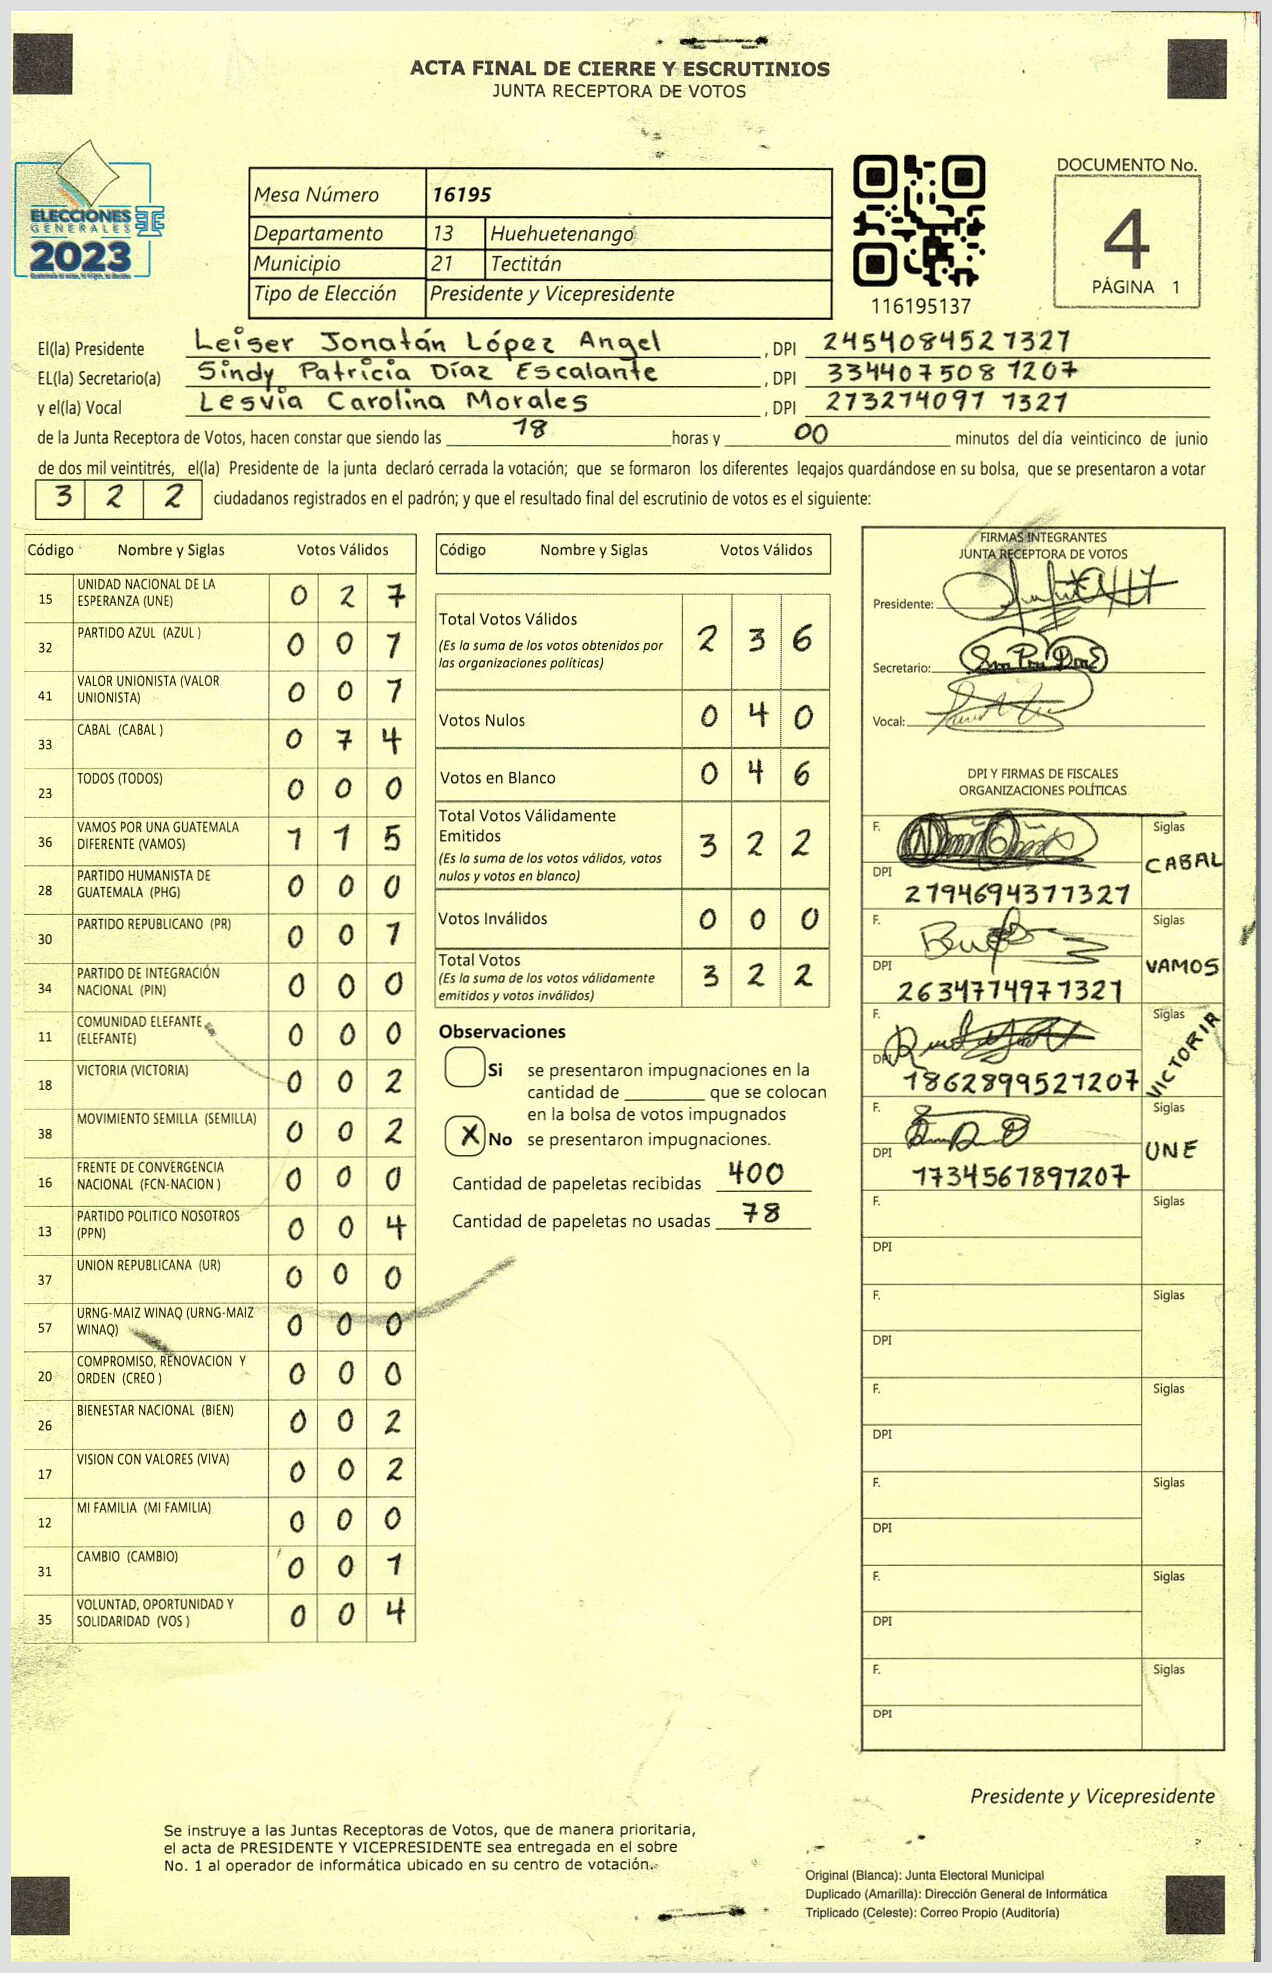 ACTA FINAL DE CIERRE Y ESCRUTINIOS
JUNTA RECEPTORA DE VOTOS
ELECCIONES
GENERALES
2023
Mesa Número 16195
Departamento 13 Huehuetenango
Municipio 21 Tectitán
Tipo de Elección Presidente y Vicepresidente
116195137
DOCUMENTO No.
4
PÁGINA 1
El(la) Presidente Leiser Jonatán López Angel , DPI 2454084521327
EL(la) Secretario(a) Sindy Patricia Díaz Escalante , DPI 3344075081207
y el(la) Vocal Lesvia Carolina Morales , DPI 2732140971321
de la Junta Receptora de Votos, hacen constar que siendo las 18 horas y 00 minutos del día veinticinco de junio
de dos mil veintitrés, el(la) Presidente de la junta declaró cerrada la votación; que se formaron los diferentes legajos guardándose en su bolsa, que se presentaron a votar
3 2 2 ciudadanos registrados en el padrón; y que el resultado final del escrutinio de votos es el siguiente:
Código Nombre y Siglas Votos Válidos
15 UNIDAD NACIONAL DE LA ESPERANZA (UNE) 0 2 7
32 PARTIDO AZUL (AZUL ) 0 0 1
41 VALOR UNIONISTA (VALOR UNIONISTA) 0 0 1
33 CABAL (CABAL ) 0 7 4
23 TODOS (TODOS) 0 0 0
36 VAMOS POR UNA GUATEMALA DIFERENTE (VAMOS) 1 1 5
28 PARTIDO HUMANISTA DE GUATEMALA (PHG) 0 0 0
30 PARTIDO REPUBLICANO (PR) 0 0 1
34 PARTIDO DE INTEGRACIÓN NACIONAL (PIN) 0 0 0
11 COMUNIDAD ELEFANTE (ELEFANTE) 0 0 0
18 VICTORIA (VICTORIA) 0 0 2
38 MOVIMIENTO SEMILLA (SEMILLA) 0 0 2
16 FRENTE DE CONVERGENCIA NACIONAL (FCN-NACION ) 0 0 0
13 PARTIDO POLITICO NOSOTROS (PPN) 0 0 4
37 UNION REPUBLICANA (UR) 0 0 0
57 URNG-MAIZ WINAQ (URNG-MAIZ WINAQ) 0 0 0
20 COMPROMISO, RENOVACION Y ORDEN (CREO ) 0 0 0
26 BIENESTAR NACIONAL (BIEN) 0 0 2
17 VISION CON VALORES (VIVA) 0 0 2
12 MI FAMILIA (MI FAMILIA) 0 0 0
31 CAMBIO (CAMBIO) 0 0 1
35 VOLUNTAD, OPORTUNIDAD Y SOLIDARIDAD (VOS ) 0 0 4
Código Nombre y Siglas Votos Válidos
Total Votos Válidos 2 3 6
(Es la suma de los votos obtenidos por
las organizaciones políticas)
Votos Nulos 0 4 0
Votos en Blanco 0 4 6
Total Votos Válidamente
Emitidos 3 2 2
(Es la suma de los votos válidos, votos
nulos y votos en blanco)
Votos Inválidos 0 0 0
Total Votos 3 2 2
(Es la suma de los votos válidamente
emitidos y votos inválidos)
Observaciones
Si se presentaron impugnaciones en la
cantidad de ________ que se colocan
en la bolsa de votos impugnados
X No se presentaron impugnaciones.
Cantidad de papeletas recibidas 400
Cantidad de papeletas no usadas 78
FIRMAS INTEGRANTES
JUNTA RECEPTORA DE VOTOS
Presidente:
Secretario:
Vocal:
DPI Y FIRMAS DE FISCALES
ORGANIZACIONES POLÍTICAS
F. Siglas
CABAL
DPI 2194694371327
F. Siglas
VAMOS
DPI 2634774971321
F. Siglas
VICTORIA
DPI 1862899521207
F. Siglas
UNE
DPI 1734561891207
F. Siglas
DPI
F. Siglas
DPI
F. Siglas
DPI
F. Siglas
DPI
F. Siglas
DPI
F. Siglas
DPI
Presidente y Vicepresidente
Se instruye a las Juntas Receptoras de Votos, que de manera prioritaria,
el acta de PRESIDENTE Y VICEPRESIDENTE sea entregada en el sobre
No. 1 al operador de informática ubicado en su centro de votación.
Original (Blanca): Junta Electoral Municipal
Duplicado (Amarilla): Dirección General de Informática
Triplicado (Celeste): Correo Propio (Auditoría)